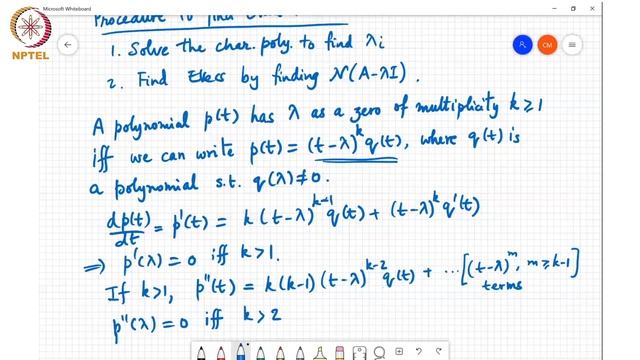 Microsoft Whiteboard
Procedure to find
1. Solve the char. poly. to find λi
2. Find Evecs by finding N(A-λI).
A polynomial p(t) has λ as a zero of multiplicity k ≥ 1
iff we can write p(t) = (t-λ)^k q(t), where q(t) is
a polynomial s.t. q(λ) ≠ 0.
dp(t)/dt = p'(t) = k (t-λ)^{k-1} q(t) + (t-λ)^k q'(t)
⇒ p'(λ) = 0 iff k > 1.
If k > 1, p''(t) = k(k-1) (t-λ)^{k-2} q(t) + ... [(t-λ)^m, m ≥ k-1]
terms
p''(λ) = 0 iff k > 2
NPTEL
CM